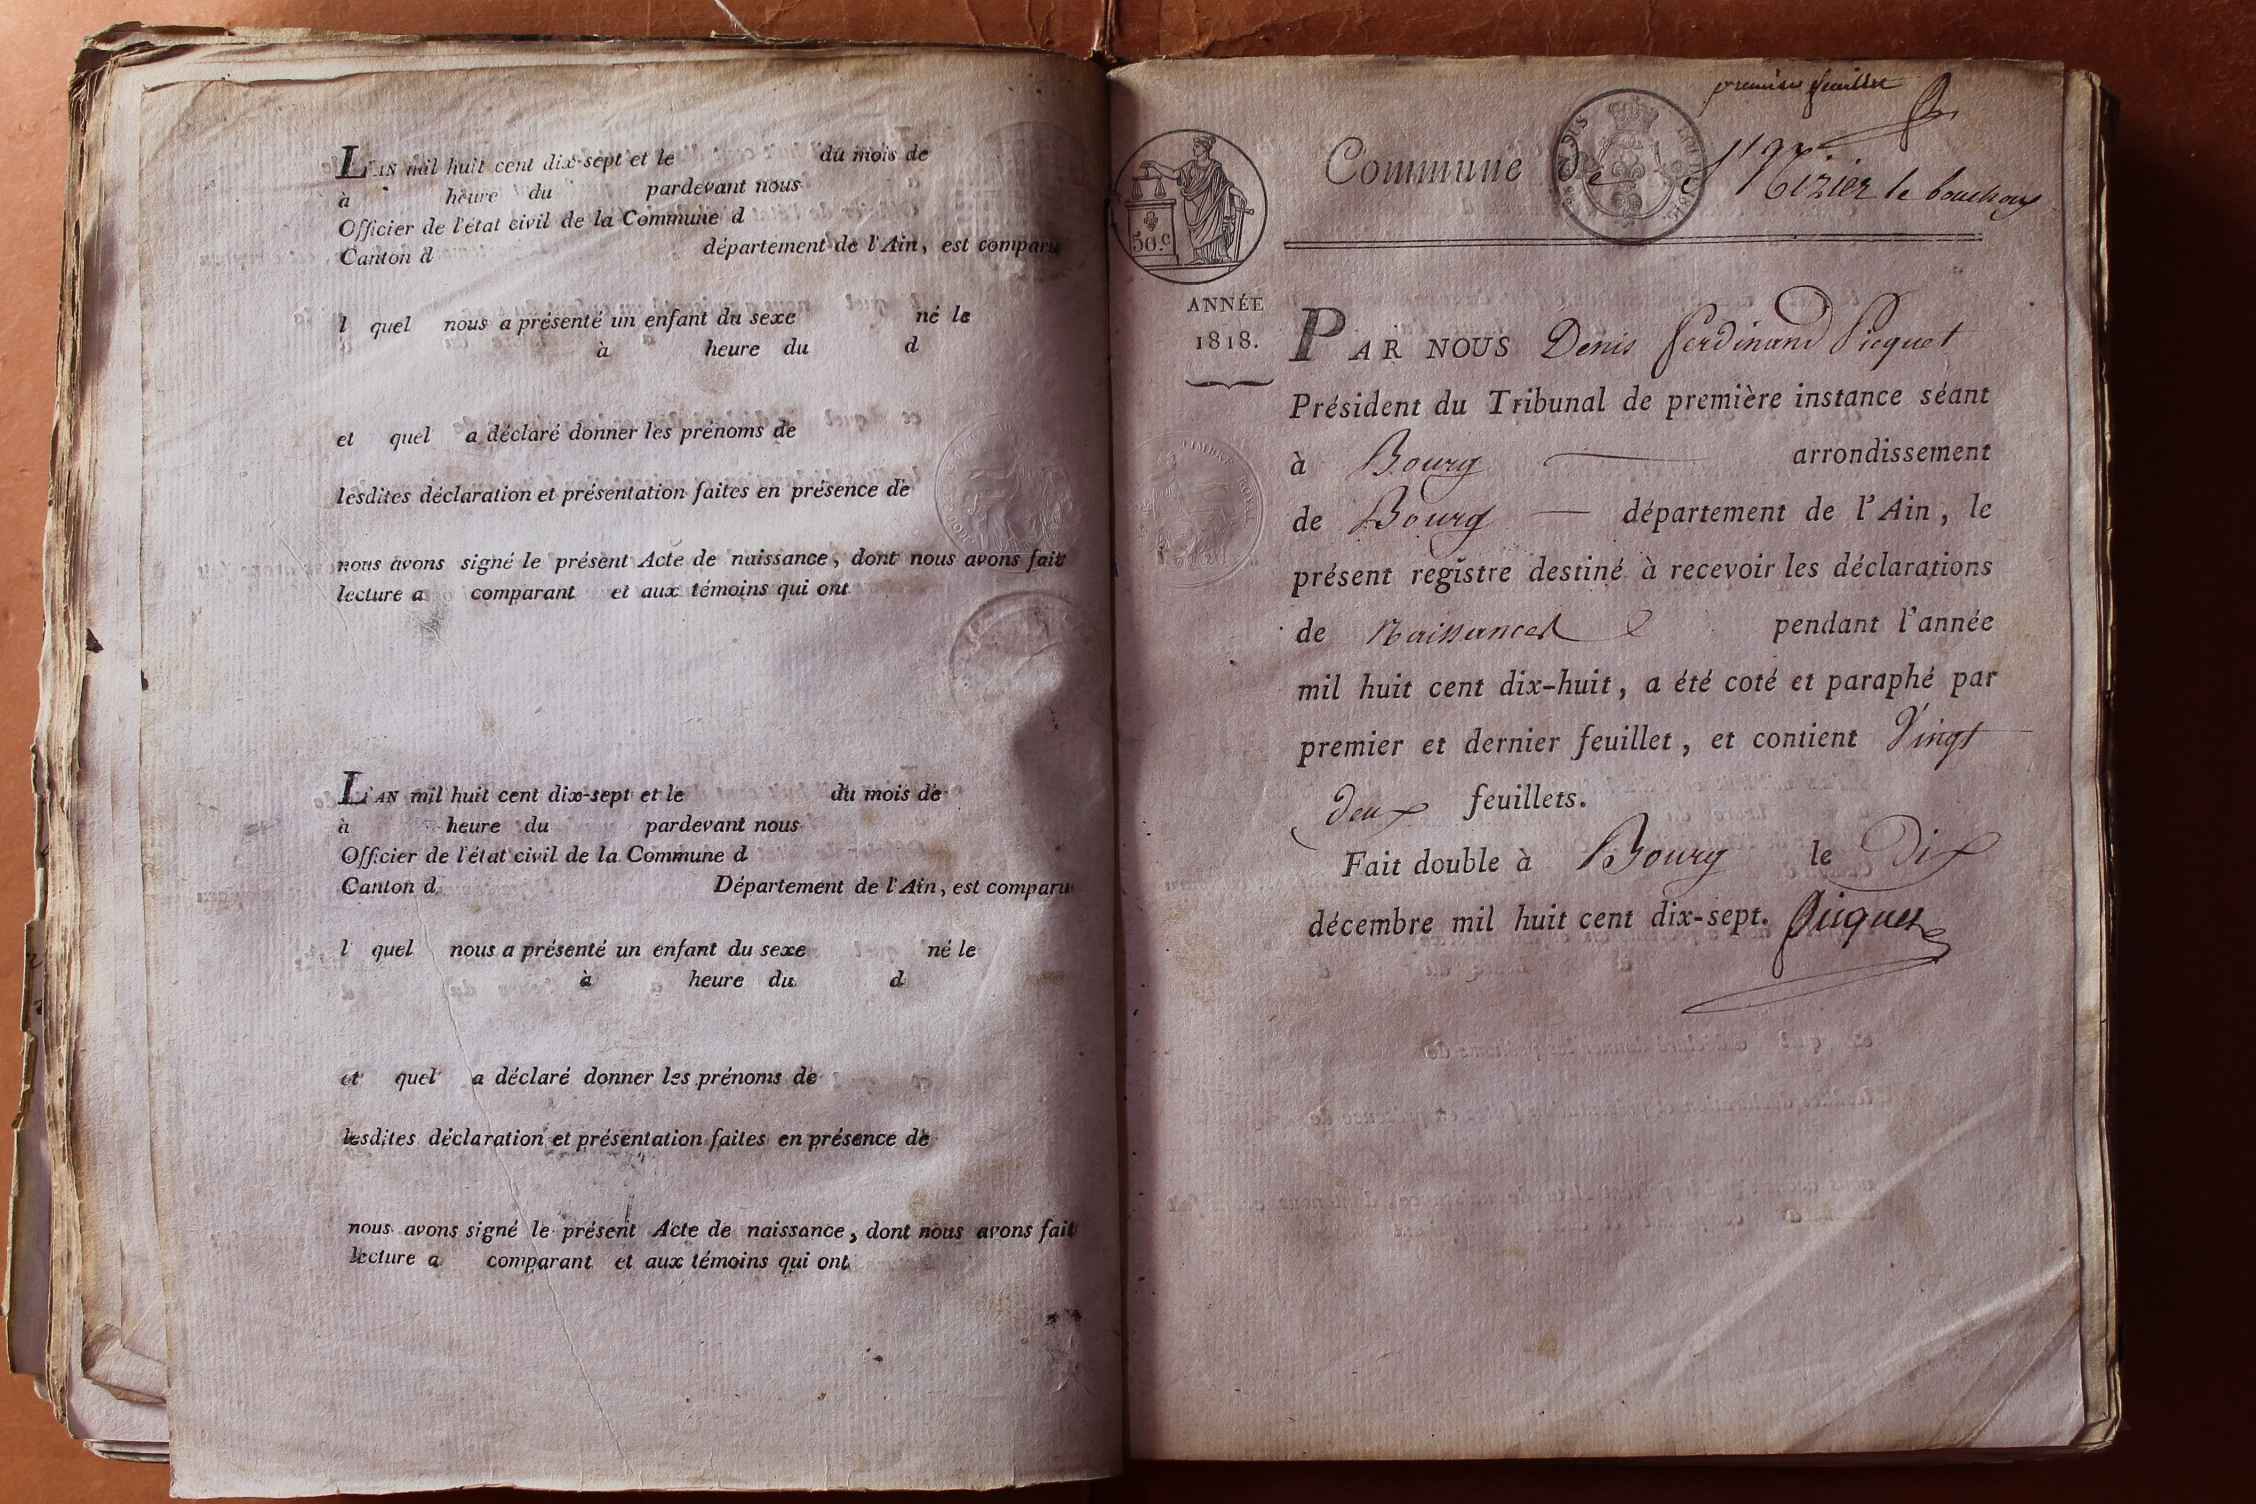 L'AN mil huit cent dix-sept et le du mois de
à heure du pardevant nous
Officier de l'état civil de la Commune d
Canton d département de l'Ain, est comparu
l quel nous a présenté un enfant du sexe né le
à heure du d
et quel a déclaré donner les prénoms de
lesdites déclaration et présentation faites en présence de
nous avons signé le présent Acte de naissance, dont nous avons fait
lecture a comparant et aux témoins qui ont
L'AN mil huit cent dix-sept et le du mois de
à heure du pardevant nous
Officier de l'état civil de la Commune d
Canton d Département de l'Ain, est comparu
l quel nous a présenté un enfant du sexe né le
à heure du d
et quel a déclaré donner les prénoms de
lesdites déclaration et présentation faites en présence de
nous avons signé le présent Acte de naissance, dont nous avons fait
lecture a comparant et aux témoins qui ont
premier feuillet
Commune de St Nizier le bouchoux
50.c
ANNÉE
1818.
PAR NOUS Denis Ferdinand Picquet
Président du Tribunal de première instance séant
à Bourg arrondissement
de Bourg — département de l'Ain, le
présent registre destiné à recevoir les déclarations
de Naissances pendant l'année
mil huit cent dix-huit, a été coté et paraphé par
premier et dernier feuillet, et contient Vingt
deux feuillets.
Fait double à Bourg le Dix
décembre mil huit cent dix-sept. Picquet